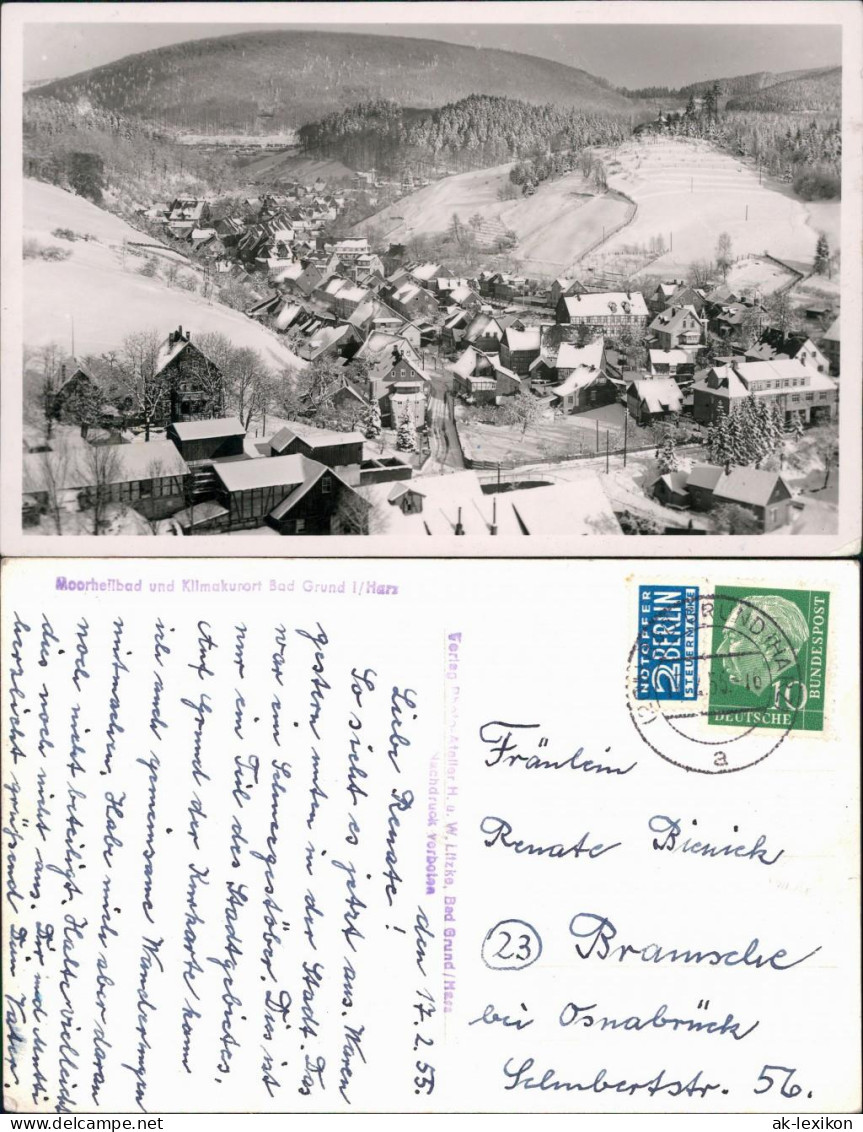 Moorheilbad und Klimakurort Bad Grund i/Harz
den 17.2.55.
Liebe Renate!
So sieht es jetzt aus. Waren
gestern unten in der Stadt. Das
war ein Schneegestöber. Dies ist
nur ein Teil des Stadtgebietes.
Auf Grund der Kurkarte kann
ich auch gemeinsame Wanderungen
mitmachen. Habe mich aber daran
noch nicht beteiligt. Halte vielleicht
dies noch nicht aus. Dir und Mutti
herzlichst grüßend Dein Vater.
Verlag Photo-Atelier H. u. W. Litzke, Bad Grund/Harz
Nachdruck verboten
NOTOPFER
2 BERLIN
STEUERMARKE
10
DEUTSCHE
BUNDESPOST
GRUND (HA
a
Fräulein
Renate Bienick
23 Bramsche
bei Osnabrück
Selmbertstr. 56.
ak-lexikon